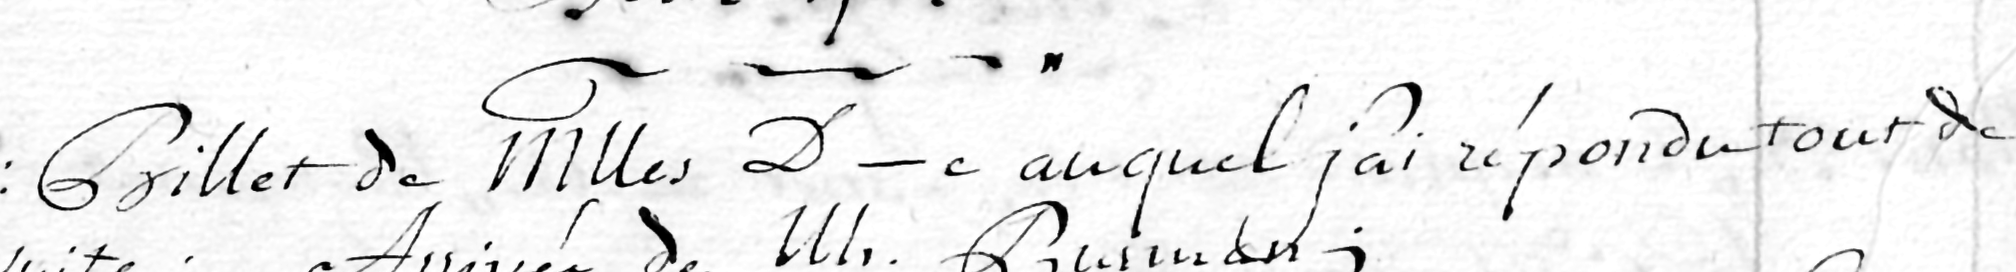 : Billet de Mlles D—e auquel j'ai répondu tout de
suite. Arrivée de Mr.